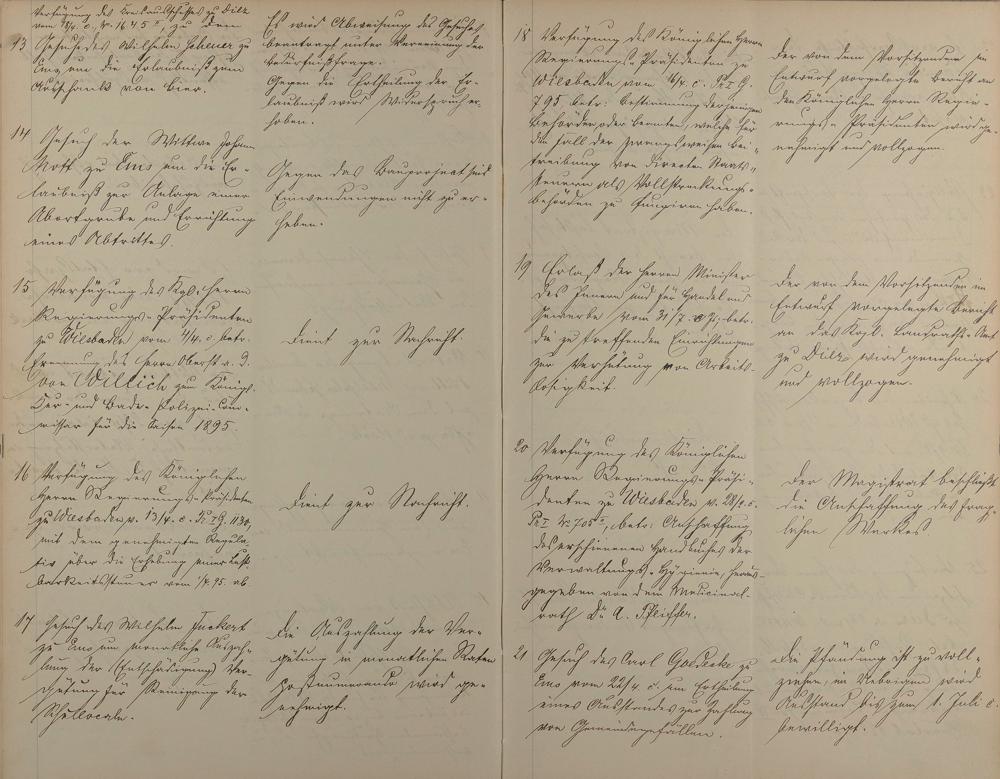 Verfügung des Kreisausschusses zu Diez
vom 18/4. c., No 1645 II zu dem
13 Gesuche des Wilhelm zu
Ems um die Erlaubniß zum
Ausschank von Bier.
Es wird Abweisung des Gesuches
beantragt unter Verneinung der
Bedürfnißfrage.
Gegen die Ertheilung der Er-
laubniß wird Widerspruch er-
hoben.
14 Gesuch der Wittwe Johann
Nott zu Ems um die Er-
laubniß zur Anlage einer
Abortgrube und Errichtung
eines Abtrittes.
Gegen das Bauproject sind
Einwendungen nicht zu er-
heben.
15 Verfügung des Kgl. Herrn
Regierungs-Präsidenten
zu Wiesbaden vom 4/4. c. betr.
Ernennung des Herrn Oberst a. D.
von Willich zum Königl.
Kur- und Bade-Polizei-Com-
missar für die Saison 1895.
Dient zur Nachricht.
16 Verfügung des Königlichen
Herrn Regierungs-Präsidenten
zu Wiesbaden v. 13/4. c. Pr. I G. 1130,
mit dem genehmigten Regula-
tiv über die Erhebung einer Lust-
barkeitssteuer vom 1/4 95. ab
Dient zur Nachricht.
17 Gesuch des Wilhelm
zu Ems um monatliche Auszah-
lung der (Entschädigung) Ver-
gütung für Reinigung der
Schullocale.
Die Auszahlung der Ver-
gütung in monatlichen Raten
postnumerando wird ge-
nehmigt.
18 Verfügung des Königlichen Herrn
Regierungs-Präsidenten zu
Wiesbaden vom c. Pr. I G.
795. betr. Bestimmung derjenigen
Behörden oder Beamten, welche für
den Fall der zwangsweisen Bei-
treibung von directen Staats-
steuern als Vollstreckungs-
behörden zu fungiren haben.
Der von dem Vorsitzenden im
Entwurf vorgelegte Bericht an
den Königlichen Herrn Regie-
rungs-Präsidenten wird ge-
nehmigt und vollzogen.
19 Erlaß der Herrn Minister
des Innern und für Handel und
Gewerbe vom betr.
die zu treffenden Einrichtungen
zur Verhütung von Arbeits-
losigkeit.
Der von dem Vorsitzenden im
Entwurf vorgelegte Bericht
an das Kgl. Landraths-Amt
zu Diez wird genehmigt
und vollzogen.
20 Verfügung des Königlichen
Herrn Regierungs-Präsi-
denten zu Wiesbaden v. c.
Pr. I No 705 betr: Anschaffung
des erschienenen Handbuches der
Verwaltungs-Hygiene, heraus-
gegeben von dem Medicinal-
rath Dr. A. Pfeiffer.
Der Magistrat beschließt
die Anschaffung des frag-
lichen Werkes
21 Gesuch des Carl Goedecke zu
Ems vom 22/4. c. um Ertheilung
eines Ausstandes zur Zahlung
von Gemeindegefällen.
Die Pfändung ist zu voll-
ziehen, im Uebrigen wird
Ausstand bis zum 1. Juli c.
bewilligt.